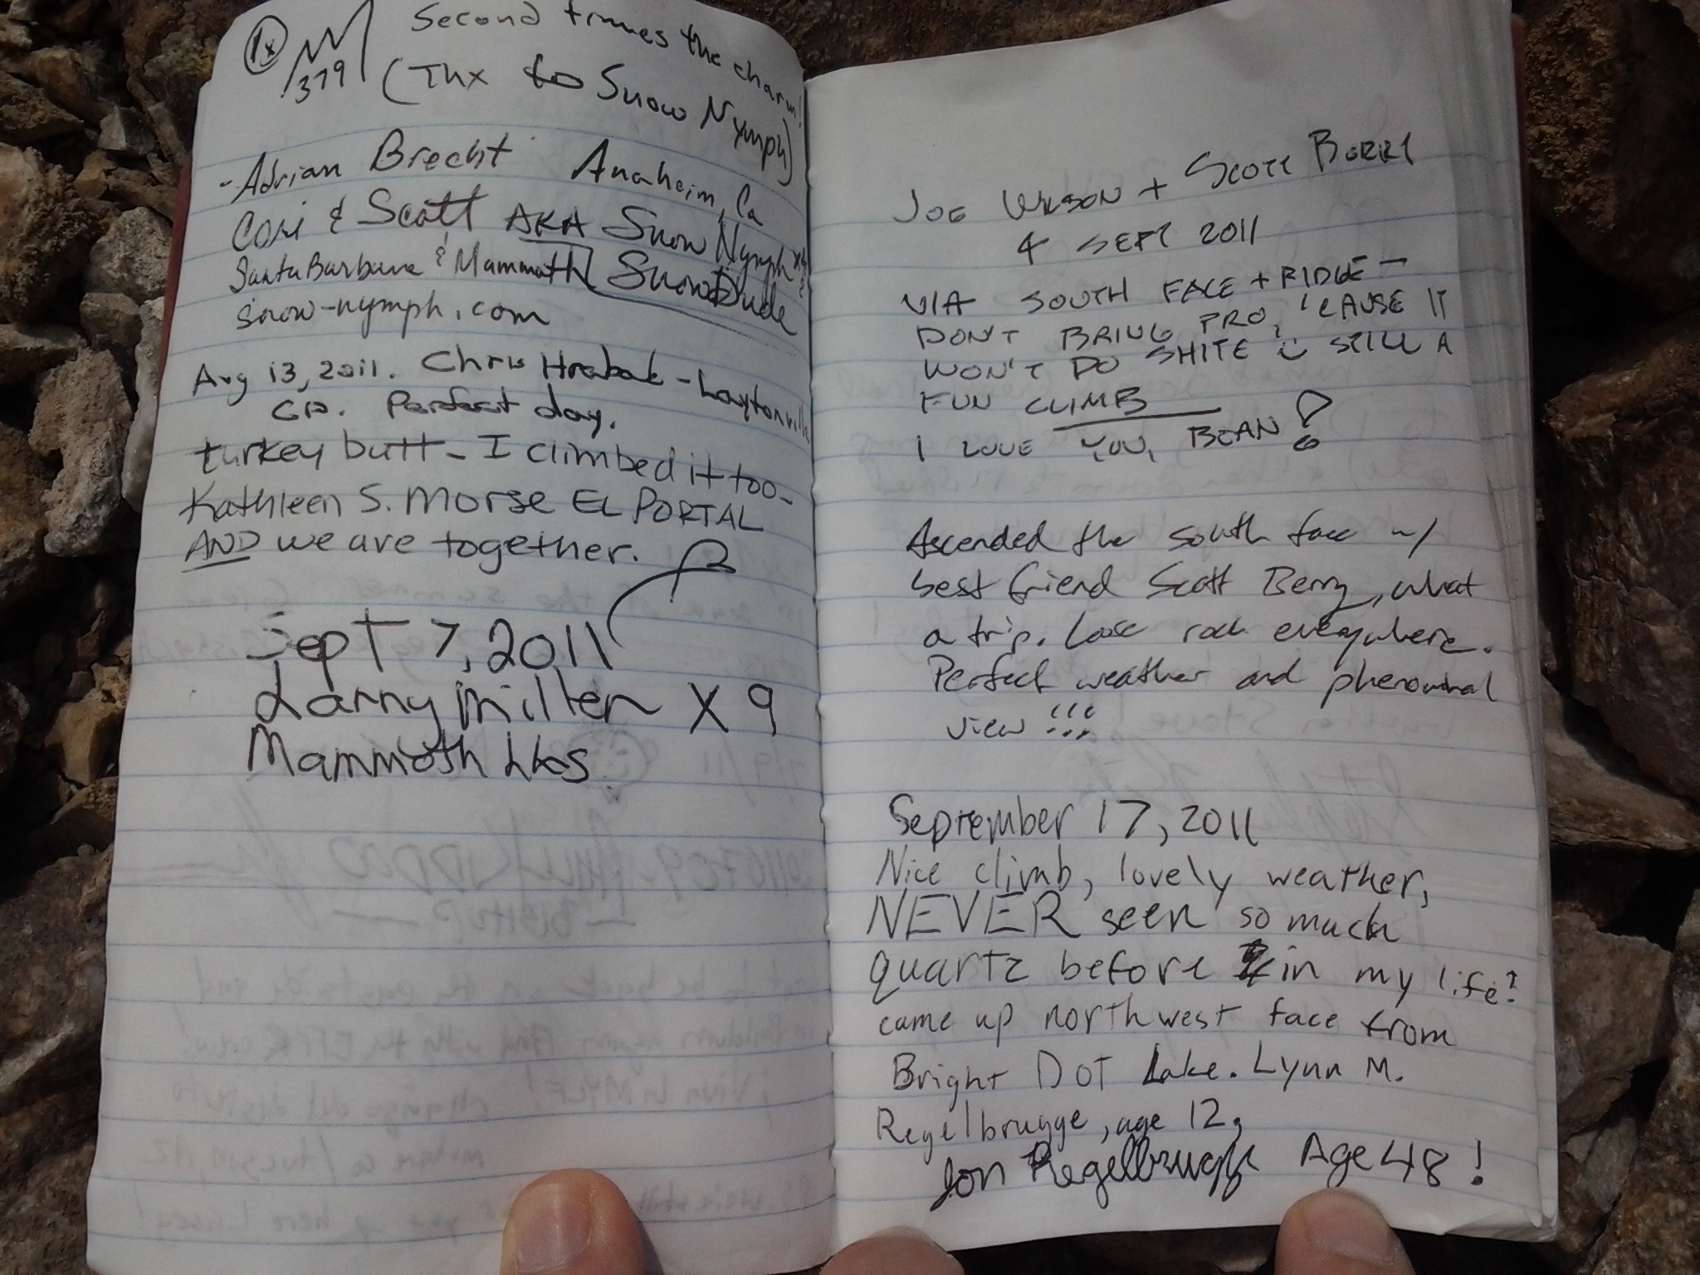 1x 379 Second times the charm!
(Thx to Snow Nymph)
-Adrian Brecht Anaheim, Ca
Cori & Scott AKA Snow Nymph x4 &
Santa Barbara & Mammoth SnowDude
snow-nymph.com
Aug 13, 2011. Chris Hrabak - Laytonville
CA. Perfect day.
turkey butt - I climbed it too -
Kathleen S. Morse EL PORTAL
AND we are together.
Sept 7, 2011
Larry Miller X 9
Mammoth Lks
JOE WILSON + SCOTT BERRY
4 SEPT 2011
VIA SOUTH FACE + RIDGE -
DON'T BRING PRO, 'CAUSE IT
WON'T DO SHITE STILL A
FUN CLIMB
I LOVE YOU, BEAN!
Ascended the south face w/
best friend Scott Berry, what
a trip. Loose rock everywhere.
Perfect weather and phenominal
view!!!
September 17, 2011
Nice climb, lovely weather,
NEVER seen so much
quartz before in my life!
came up northwest face from
Bright DOT Lake. Lynn M.
Regelbrugge, age 12,
Jon Regelbrugge Age 48!